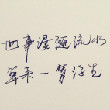 世事漫随流水
算来一梦浮生